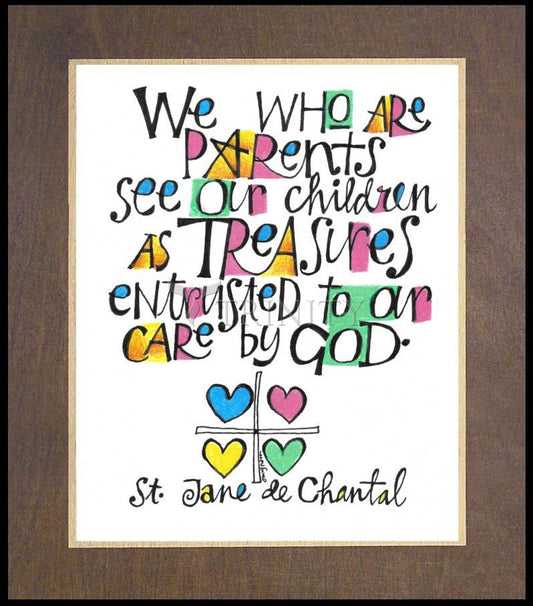 We WHO ARE
PARENTS
see our children
AS TREASURES
entrusted to our
CARE by GOD.
TRINITY
St. Jane de Chantal